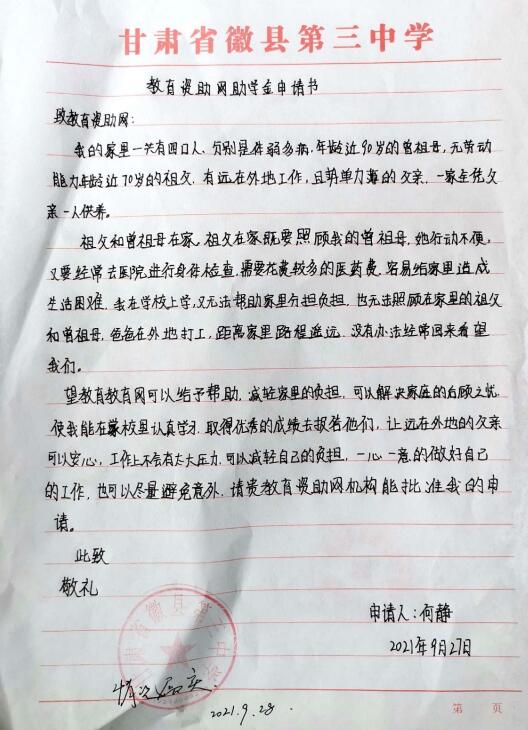 甘肃省徽县第三中学
教育资助网助学金申请书
致教育资助网:
我的家里一共有四口人,分别是体弱多病,年龄近90岁的曾祖母,无劳动
能力年龄近70岁的祖父,有远在外地工作,且势单力薄的父亲,一家全凭父
亲一人供养。
祖父和曾祖母在家,祖父在家既要照顾我的曾祖母,她行动不便,
又要经常去医院进行身体检查,需要花费较多的医药费,容易给家里造成
生活困难,我在学校上学,又无法帮助家里分担负担,也无法照顾在家里的祖父
和曾祖母,爸爸在外地打工,距离家里路程遥远,没有办法经常回来看望
我们。
望教育教育网可以给予帮助,减轻家里的负担,可以解决家庭的后顾之忧,
使我能在学校里认真学习,取得优秀的成绩去报答他们,让远在外地的父亲
可以安心,工作上不会有太大压力,可以减轻自己的负担,一心一意的做好自己
的工作,也可以尽量避免意外,请贵教育资助网机构能批准我的申
请。
此致
敬礼
申请人:何静
2021年9月27日
甘肃省徽县第三中学
情况属实.
2021.9.28.
第 页